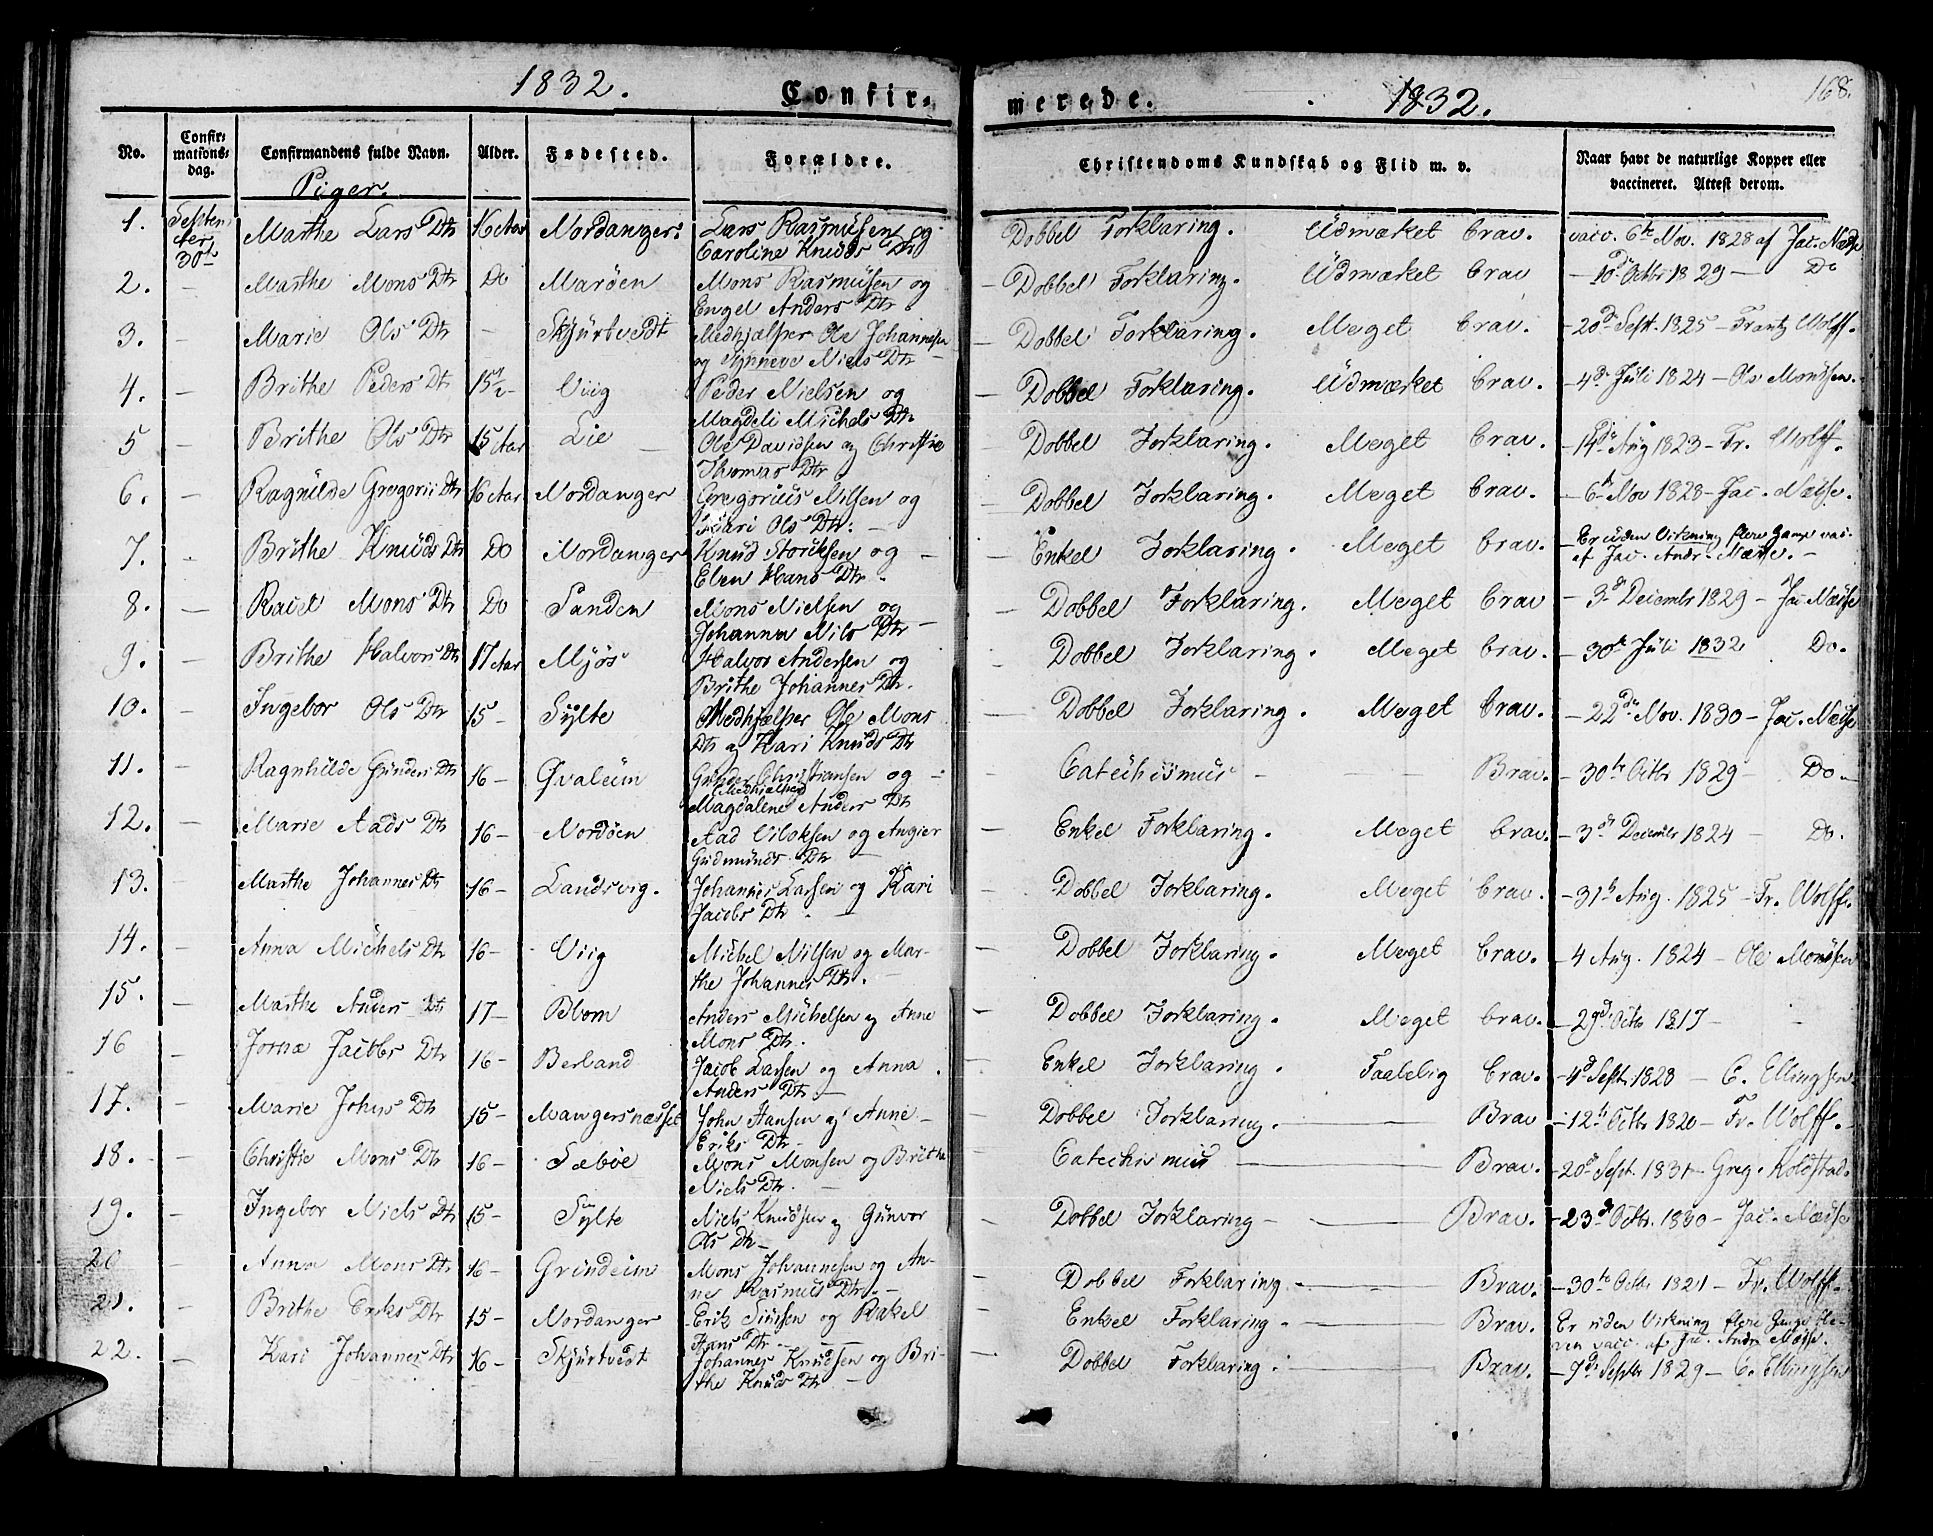 1832. Confir- merede. 1832. 168.
No. Confir- mations- dag. Confirmandens fulde Navn. Alder. Fødested. Forældre. Christendoms Kundskab og Flid m. v. Naar havt de naturlige Kopper eller vaccineret. Attest derom.
Piger.
1. Septem- ber 30te Marthe Lars Dtr 16 Aar Nordanger Lars Rasmüsen og Dobbel Forklaring. Üdmærket brav. vacc. 6te Nov. 1828 af Jac. Næse
Caroline Knuds Dtr
2. – Marthe Mons Dtr Do Marøen Mons Rasmüsen og – Dobbel Forklaring. Üdmærket brav – 10de Octbr 1829 – Do
Engel Anders Dtr
3. – Marie Ols Dtr – Skjürtvedt Medhjælper Ole Johannesen – Dobbel Forklaring. Meget brav. – 20de Sept. 1825 – Frantz Wolff.
og Synneve Niels Dtr
4. – Brithe Peders Dtr 15½ Viig Peder Nielsen og – Dobbel Forklaring. Üdmærket brav. – 4de Jüli 1824 – Ole Monsen.
Magdeli Michels Dtr
5 – Brithe Ols Dtr 15 Aar Lie Ole Davidsen og Christie – Dobbel Forklaring. Meget brav. – 14de Aug 1823 – Fr. Wolff.
Thomas Dtr
6. – Ragnilde Gregorii Dtr 16 Aar Nordanger Gregorius Nilsen og – Dobbel Forklaring. Meget brav. – 6te Nov 1828 – Jac. Næse.
Kari Ols Dtr. –
7. – Brithe Knüds Dtr Do Nordanger Knüd Storksen og – Enkel Forklaring. Meget brav. – Er uden Virkning flere Gange vac.
Elen Hans Dtr. af Jac. Andr. Næse. –
8. – Racel Mons Dtr Do Sanden Mons Nielsen og – Dobbel Forklaring. Meget brav – 3de Decembr 1829 – Jac Næse
Johanna Nils Dtr –
9. – Brithe Halvors Dtr 17 Aar Mjøs Halvor Andersen og Dobbel Forklaring. Meget brav. – 30te Jüli 1832 Do.
Brithe Johannes Dtr.
10. – Ingebor Ols Dtr 15 – Sylte Medhjælper Ole Mons – Dobbel Forklaring. Meget brav. – 22de Nov. 1830 – Jac. Næse
Dtr og Kari Knüds Dtr
11. – Ragnhilde Günders Dtr 16 – Qvaleim Günder Christiansen og – Catechismus – – – Brav. – 30te Octbr 1829 – Do –
Magdalene Anders Dtr
12. – Marie Aads Dtr 16 – Nordøen Aad og Angier – Enkel Forklaring. Meget brav. – 3de Decembr 1824 – Do.
Gudmunds Dtr –
13. – Marthe Johannes Dtr 16 – Landsvig. Johannes Larsen og Kari Dobbel Forklaring. Meget brav. – 31te Aug. 1825 – Fr. Wolff.
Jacobs Dtr. –
14. – Anna Michels Dtr 16 – Viig Michel Nilsen og Mar- – Dobbel Forklaring. Meget brav. – 4 Aug. 1824 – Ole Monsen
the Johannes Dtr. –
15. – Marthe Anders Dtr 17 – Blom Anders Michelsen og Anne – Dobbel Forklaring. Meget brav. – 29de Octbr 1817 –
Mons Dtr.
16 – Jorna Jacobs Dtr 16 – Berland Jacob Larsen og Anna – Enkel Forklaring. Taalelig brav. – 4de Sept. 1828 – C. Ellingsen
Anders Dtr. –
17. – Marie Johns Dtr 15 – Mangersnæsset John Hansen og Anne – – Dobbel Forklaring. – Brav – 12te Octbr 1820 – Fr. Wolff. –
Eriks Dtr. –
18. – Christie Mons Dtr 16 – Sæbøe Mons Monsen og Brithe – Catechismus – Brav. – 20de Sept. 1831 – Greg. Koldstad
Niels Dtr. –
19. – Ingebor Niels Dtr 15 – Sylte Niels Knüdsen og Günvor – Dobbel Forklaring – Brav. – 23de Octbr. 1830 – Jac. Næse
Ols Dtr –
20 – Anna Mons Dtr 16 – Gründeim Mons Johannesen og An- – Dobbel Forklaring. – Brav. – 30te Octbr 1821 – Fr. Wolff.
ne Rasmus Dtr. –
21. – Brithe Eriks Dtr 15 – Nordanger Erik Siürsen og Rakel – Enkel Forklaring. – Brav. Er uden Virkning flere Gange
Hans Dtr. – vacc. af Jac. Andr. Næse.
22. – Kari Johannes Dtr 16 – Skjürtvedt Johannes Knüdsen og Bri- – Dobbel Forklaring. – Brav. – 7de Septbr 1829 – C. Ellingsen
the Knüds Dtr –